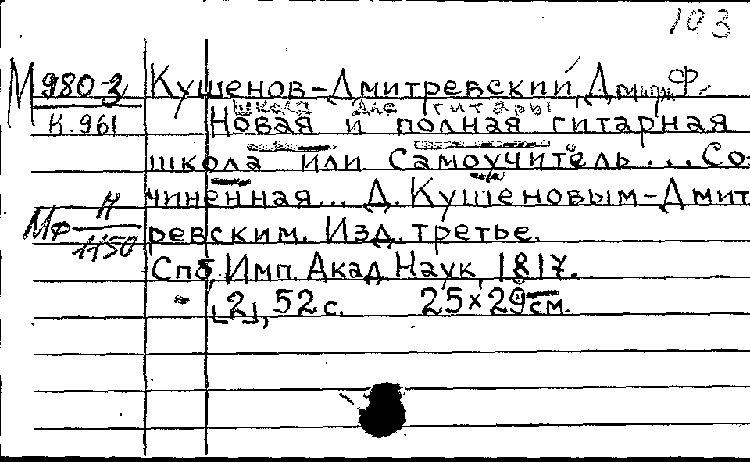 103
М 980-3 Кушенов-Дмитревский, Дмитр Ф.
школа для гитары
К.961 Новая и полная гитарная
школа или Самоучитель... Со-
чиненная... Д. Кушеновым-Дмит
МФ Н/1150 ревским. Изд. третье.
Спб, Имп. Акад. Наук, 1817.
- [2], 52 с. 25×29 см.